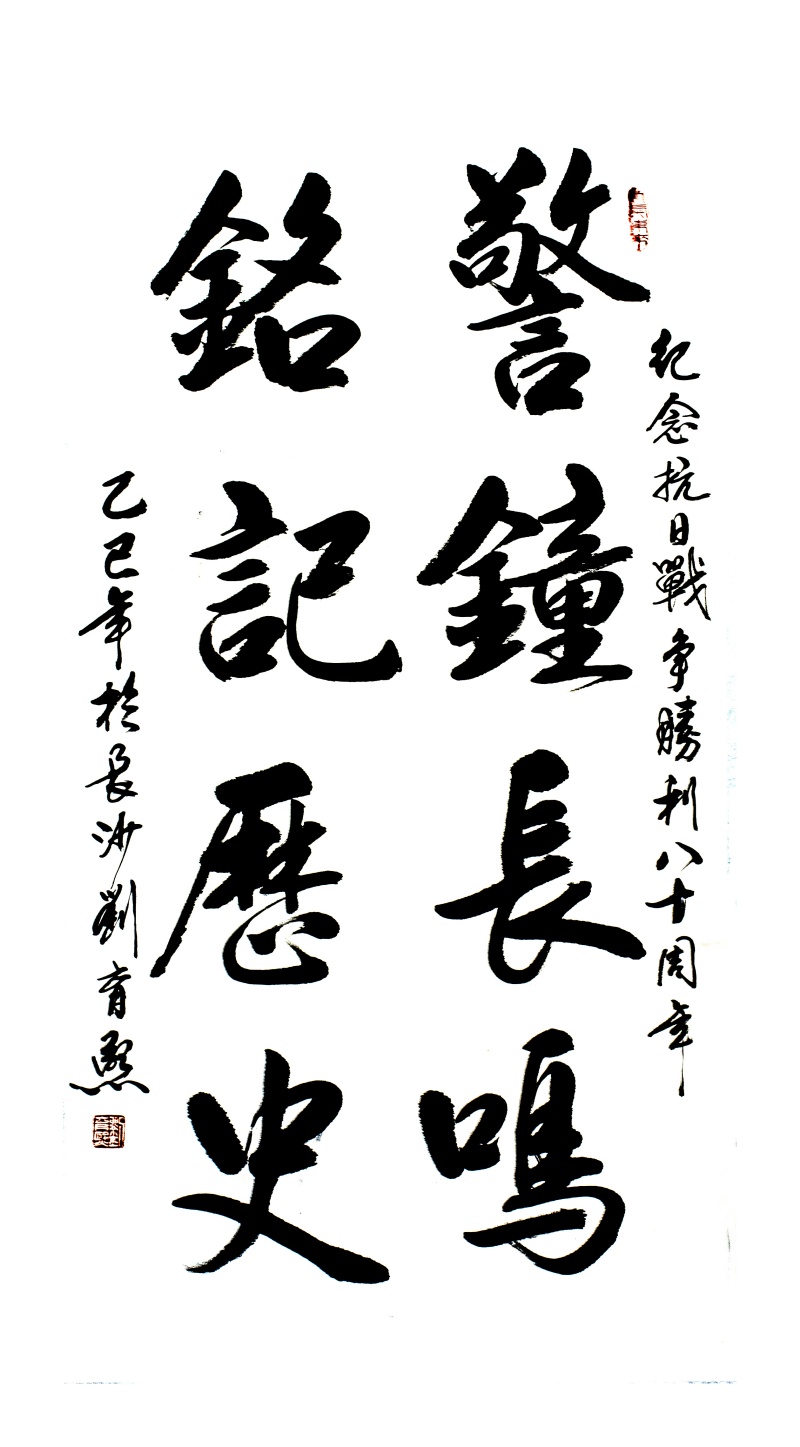 紀念抗日戰爭勝利八十周年
警鐘長鳴
銘記歷史
乙巳年於長沙劉育熙